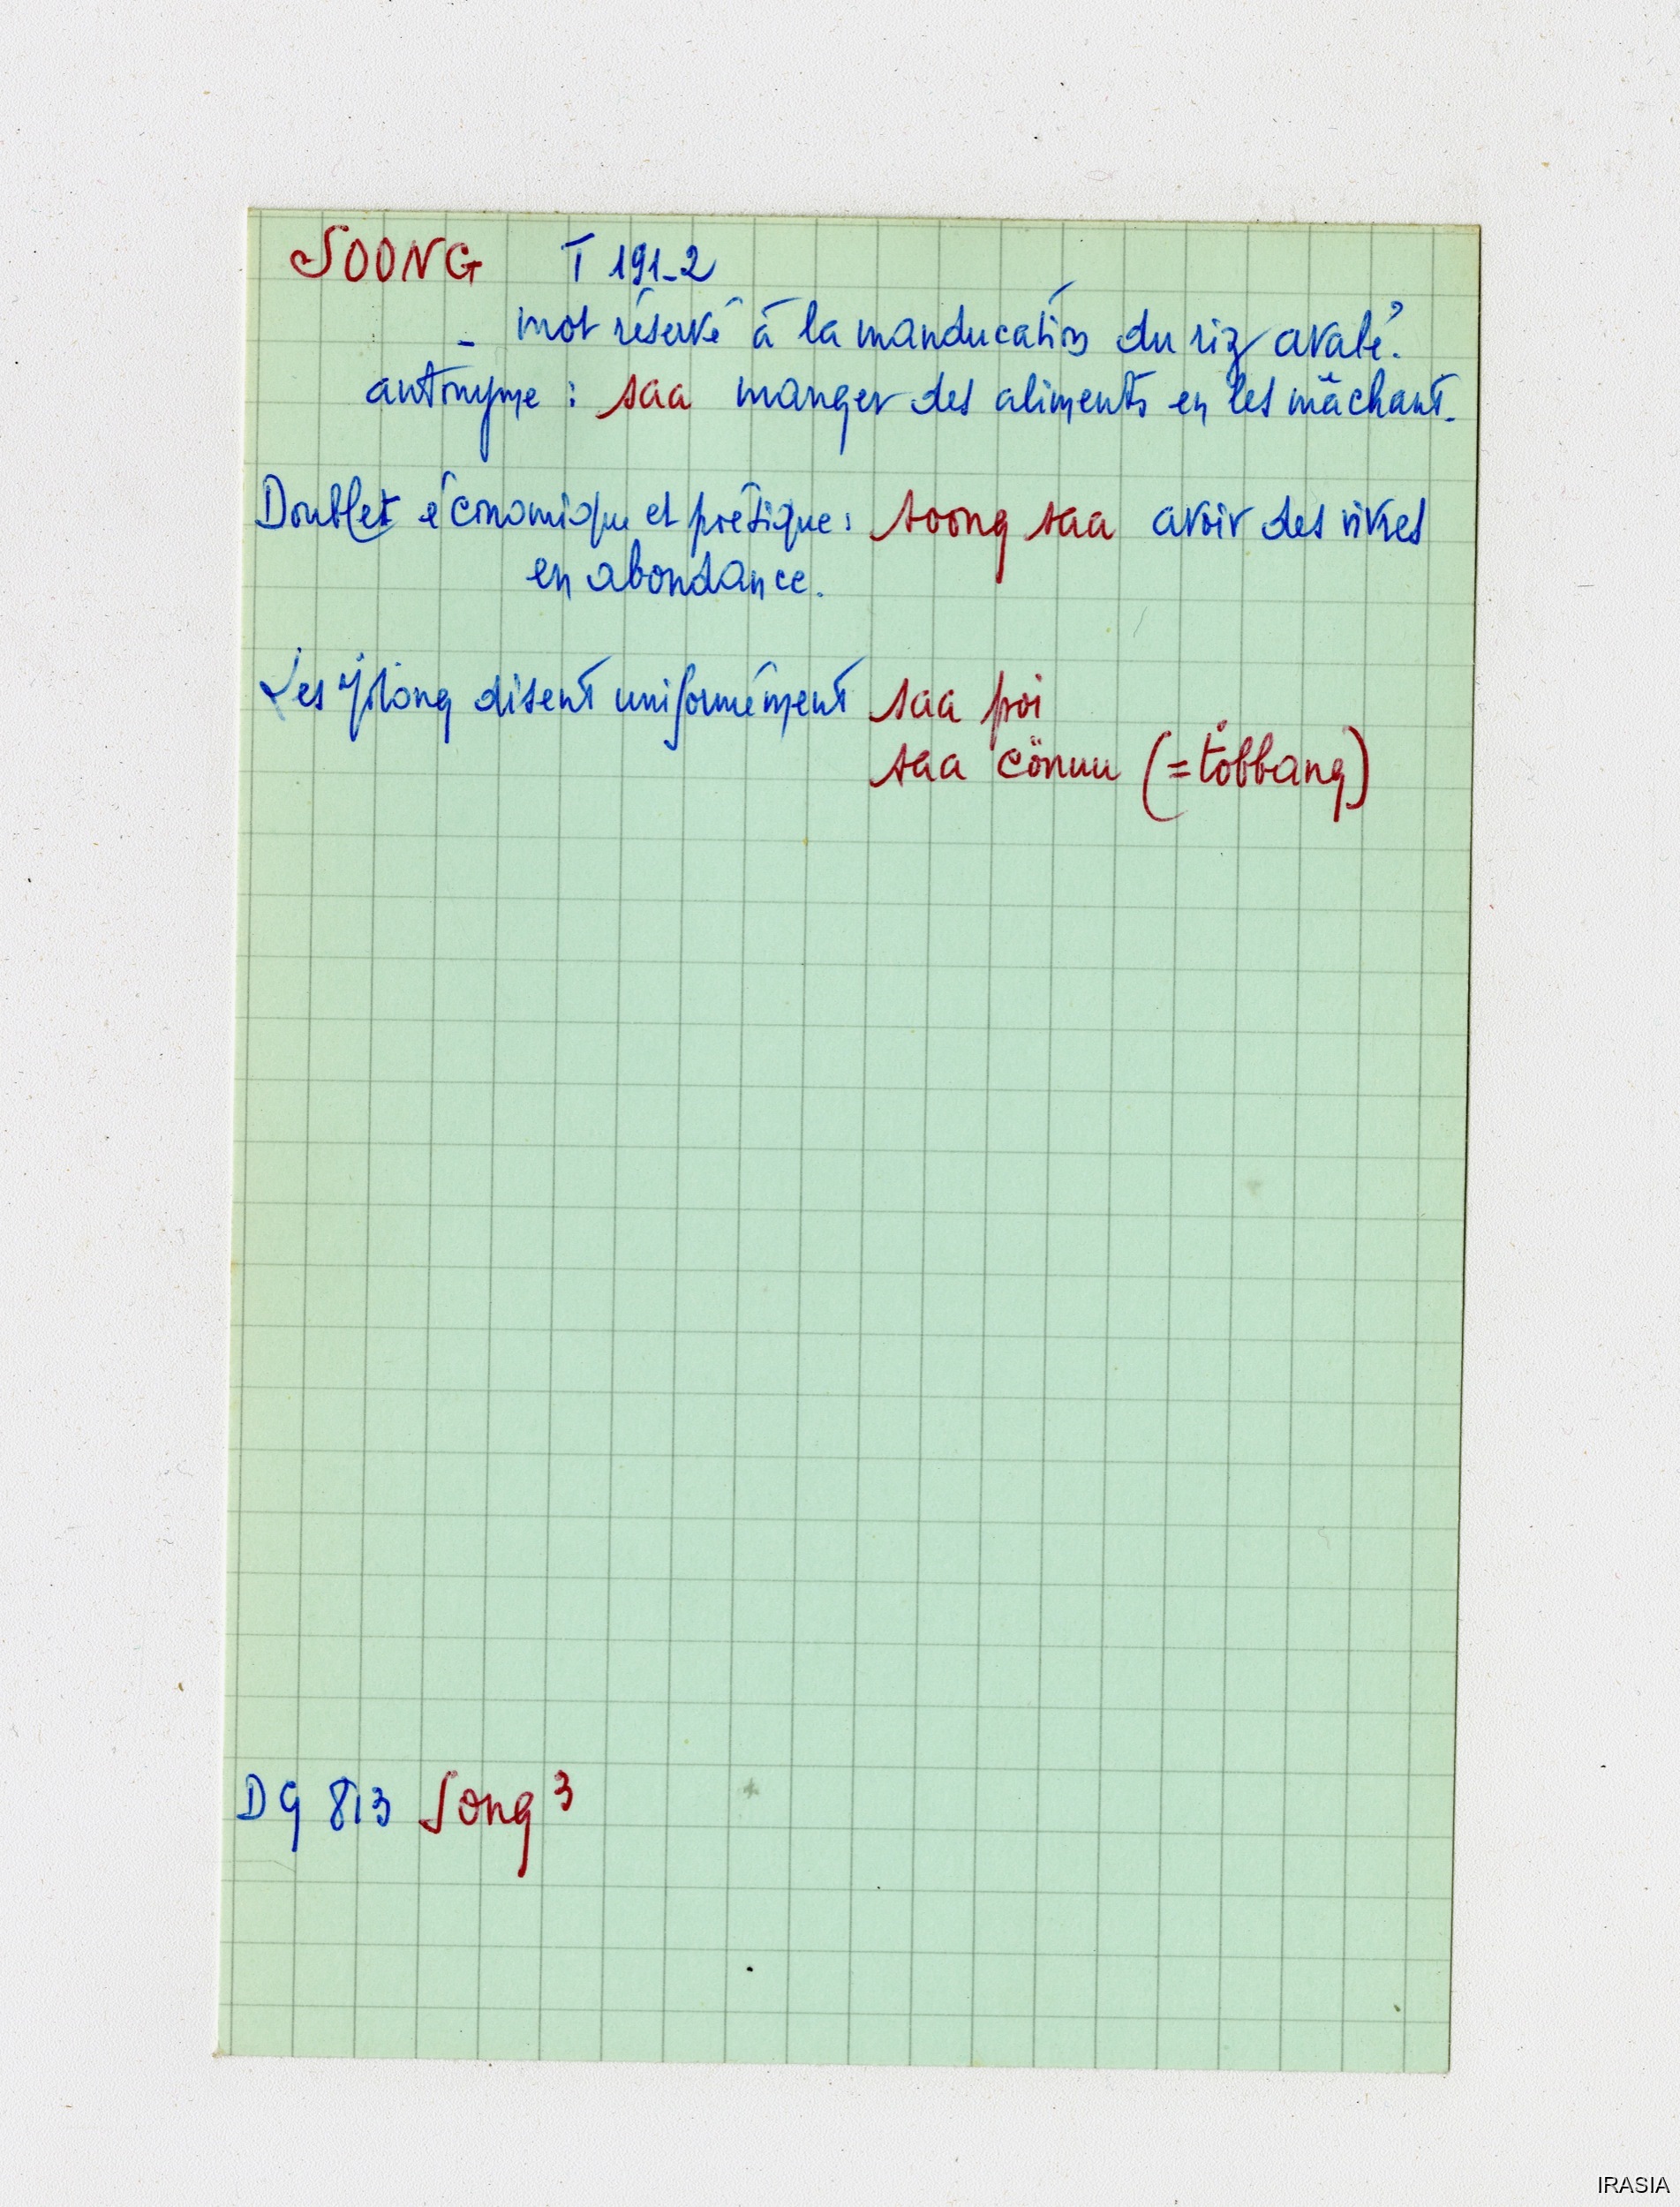 SOONG T 191-2
- mot réservé à la manducation du riz avalé.
antonyme : saa manger des aliments en les mâchant.
Doublet économique et poétique : soong saa avoir des vivres
en abondance.
Les Jölöng disent uniformément saa poi
saa cönuu (= többang)
DG 813 Song 3
IRASIA